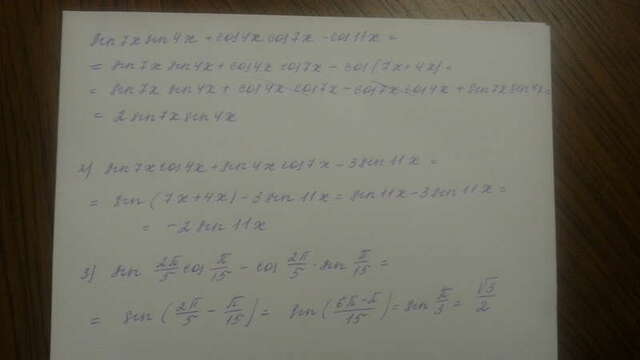 sin7x sin4x + cos4x cos7x - cos11x =
= sin7x sin4x + cos4x cos7x - cos(7x+4x) =
= sin7x sin4x + cos4x · cos7x - cos7x cos4x + sin7x sin4x =
= 2 sin7x sin4x
2) sin7x cos4x + sin4x cos7x - 3sin11x =
= sin(7x+4x) - 3sin11x = sin11x - 3sin11x =
= -2 sin11x
3) sin 2π/5 cos π/15 - cos 2π/5 · sin π/15 =
= sin(2π/5 - π/15) = sin(6π-π/15) = sin π/3 = √3/2